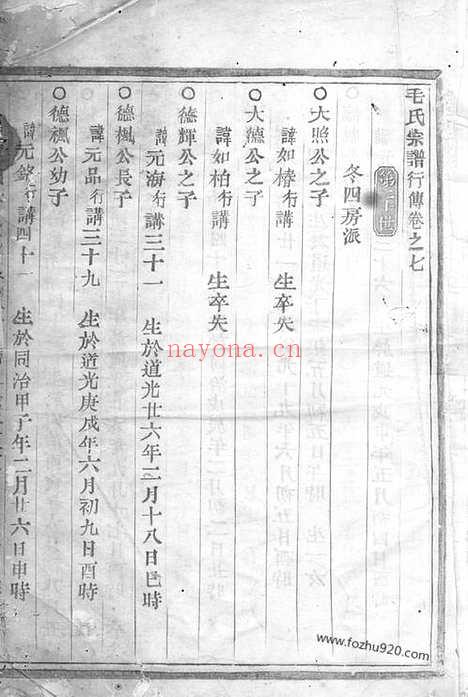 毛氏宗譜行傳卷之七
冬四房派
大照公之子
諱如椿行講 生卒失
大德公之子
諱如柏行講 生卒失
德輝公之子
諱元海行講三十一 生於道光廿六年三月十八日巳時
德楓公長子
諱元品行講三十九 生於道光庚戌年六月初九日酉時
德楓公幼子
諱元 行講四十一 生於同治甲子年二月廿六日申時
nayona.cn
www.fozhu920.com